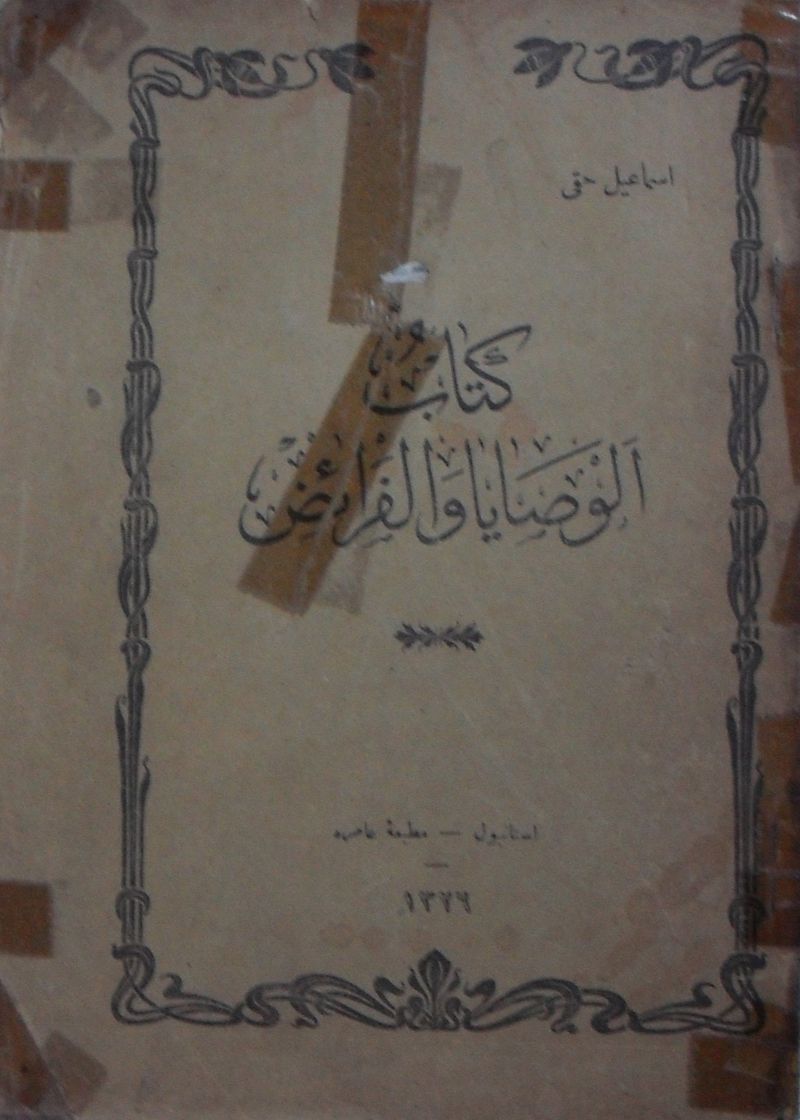 اسماعيل حقى
كتاب
الوصايا والفرائض
استانبول — مطبعهٔ عامره
١٣٢٦